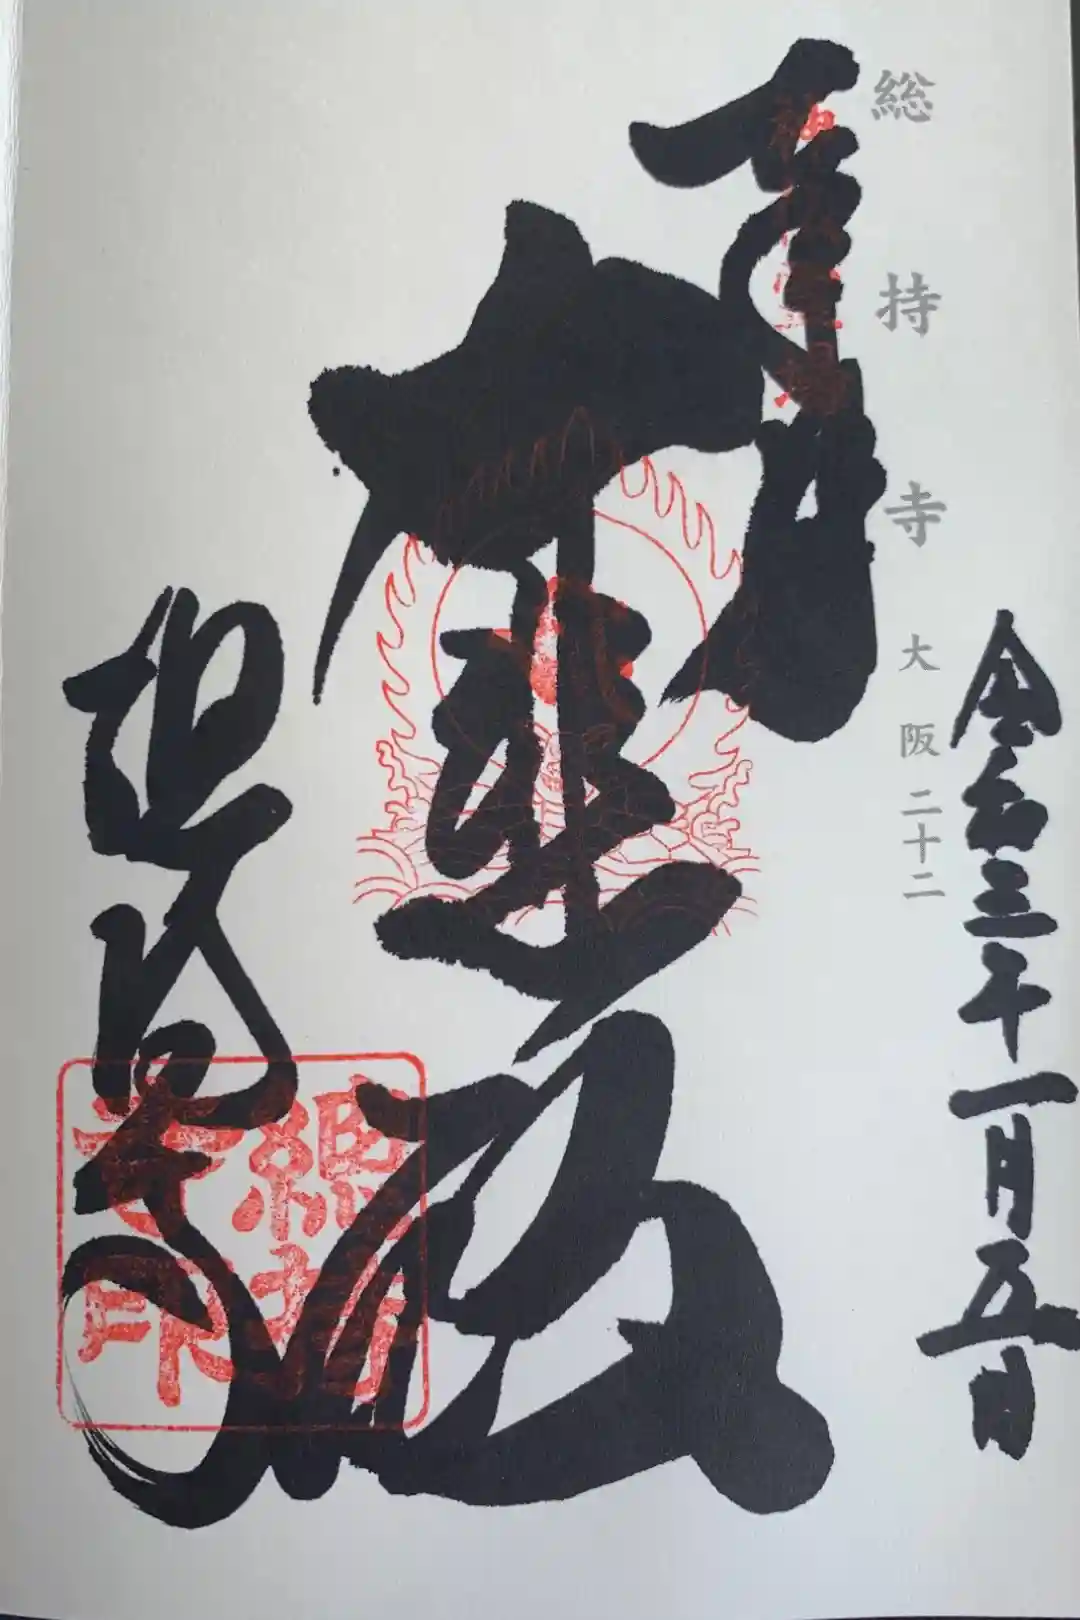 令和三年一月五日
総持寺 大阪二十二
奉拝
大悲殿
総持寺
總持寺印